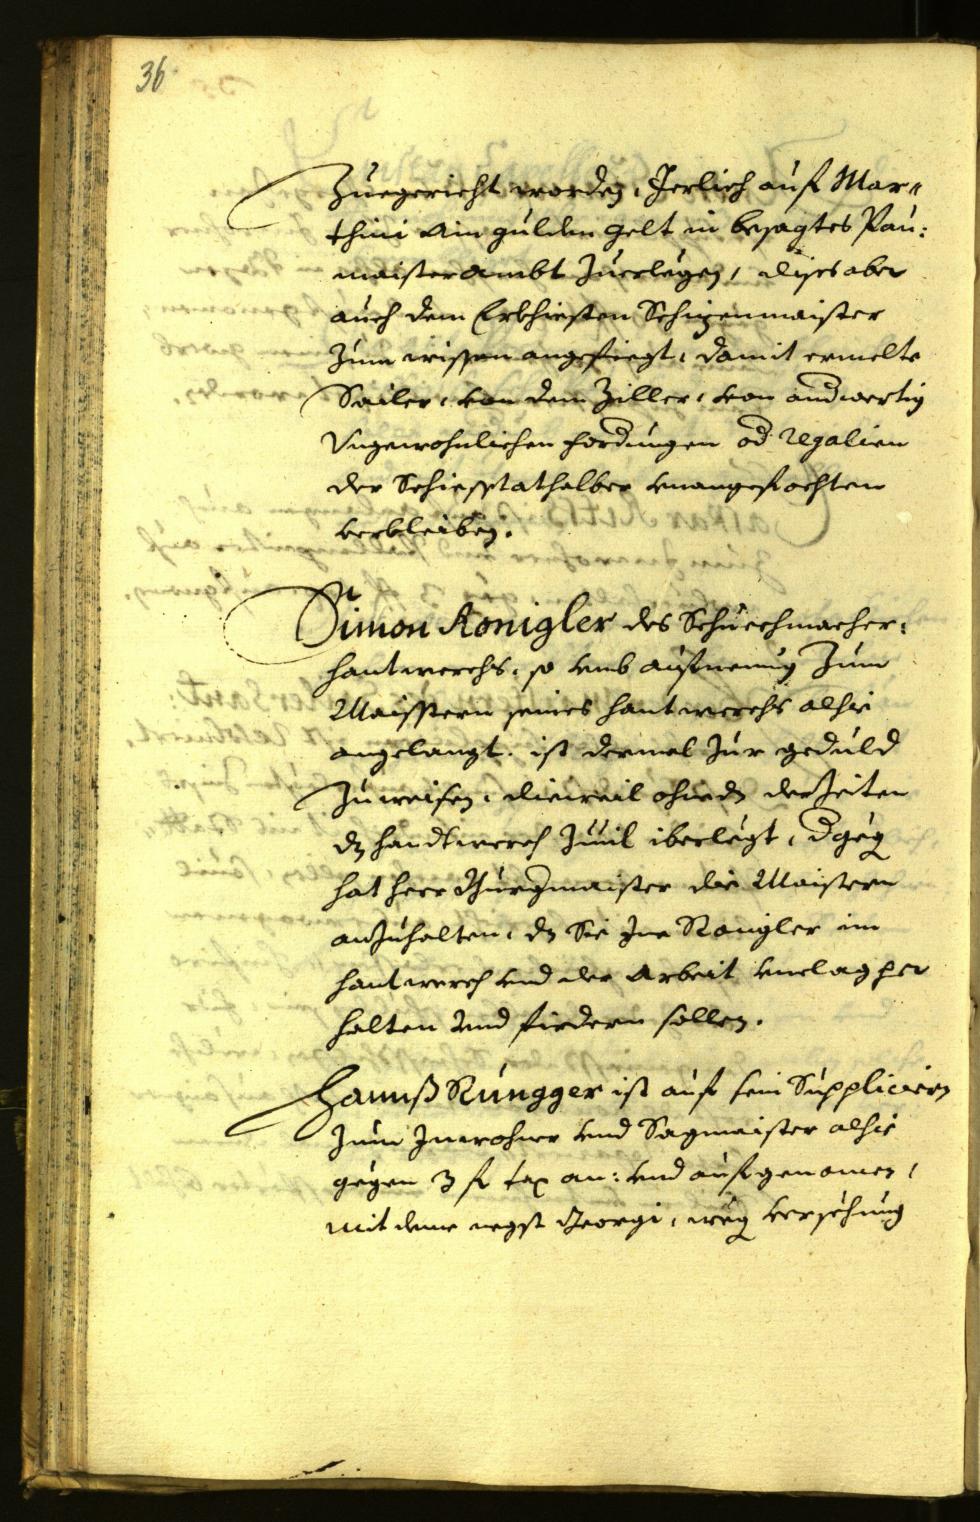 36
Zuegericht worden, Jerlich auf Mar=
thini Ain gulden gelt in besagtes Pau:
maisterambt Zuerlegen, dises aber
auch dem Erkhiesten Schizenmaister
Zum wissen angefiegt, damit ermelte
Sailer, von dem Ziller, von andwertig
Ungewohnlichen fordungen od Regalien
der Schiesstathalber unangefochten
verbleiben.
Simon Konigler des Schuechmacher:
hantwerchs, so umb aufnemung Zum
Maisstern seines hantwerchs alhie
angelangt. ist dermal Zur geduld
Zuweisen, dieweil ohnedz der Zeiten
dz handtwerch Zuuil iberlegt, dgeg
hat herr Burgmaister die Maistern
anzuhalten, dz Sie Ine Konigler im
hantwerch und der Arbeit unclagper
halten und firdern sollen.
Hannß Rungger ist auf sein Suppliciern
Zum Inwohner und Sagmaister alhie
gegen 3 f tax an: und aufgenomen,
mit deme negst Georgi, weg versehung